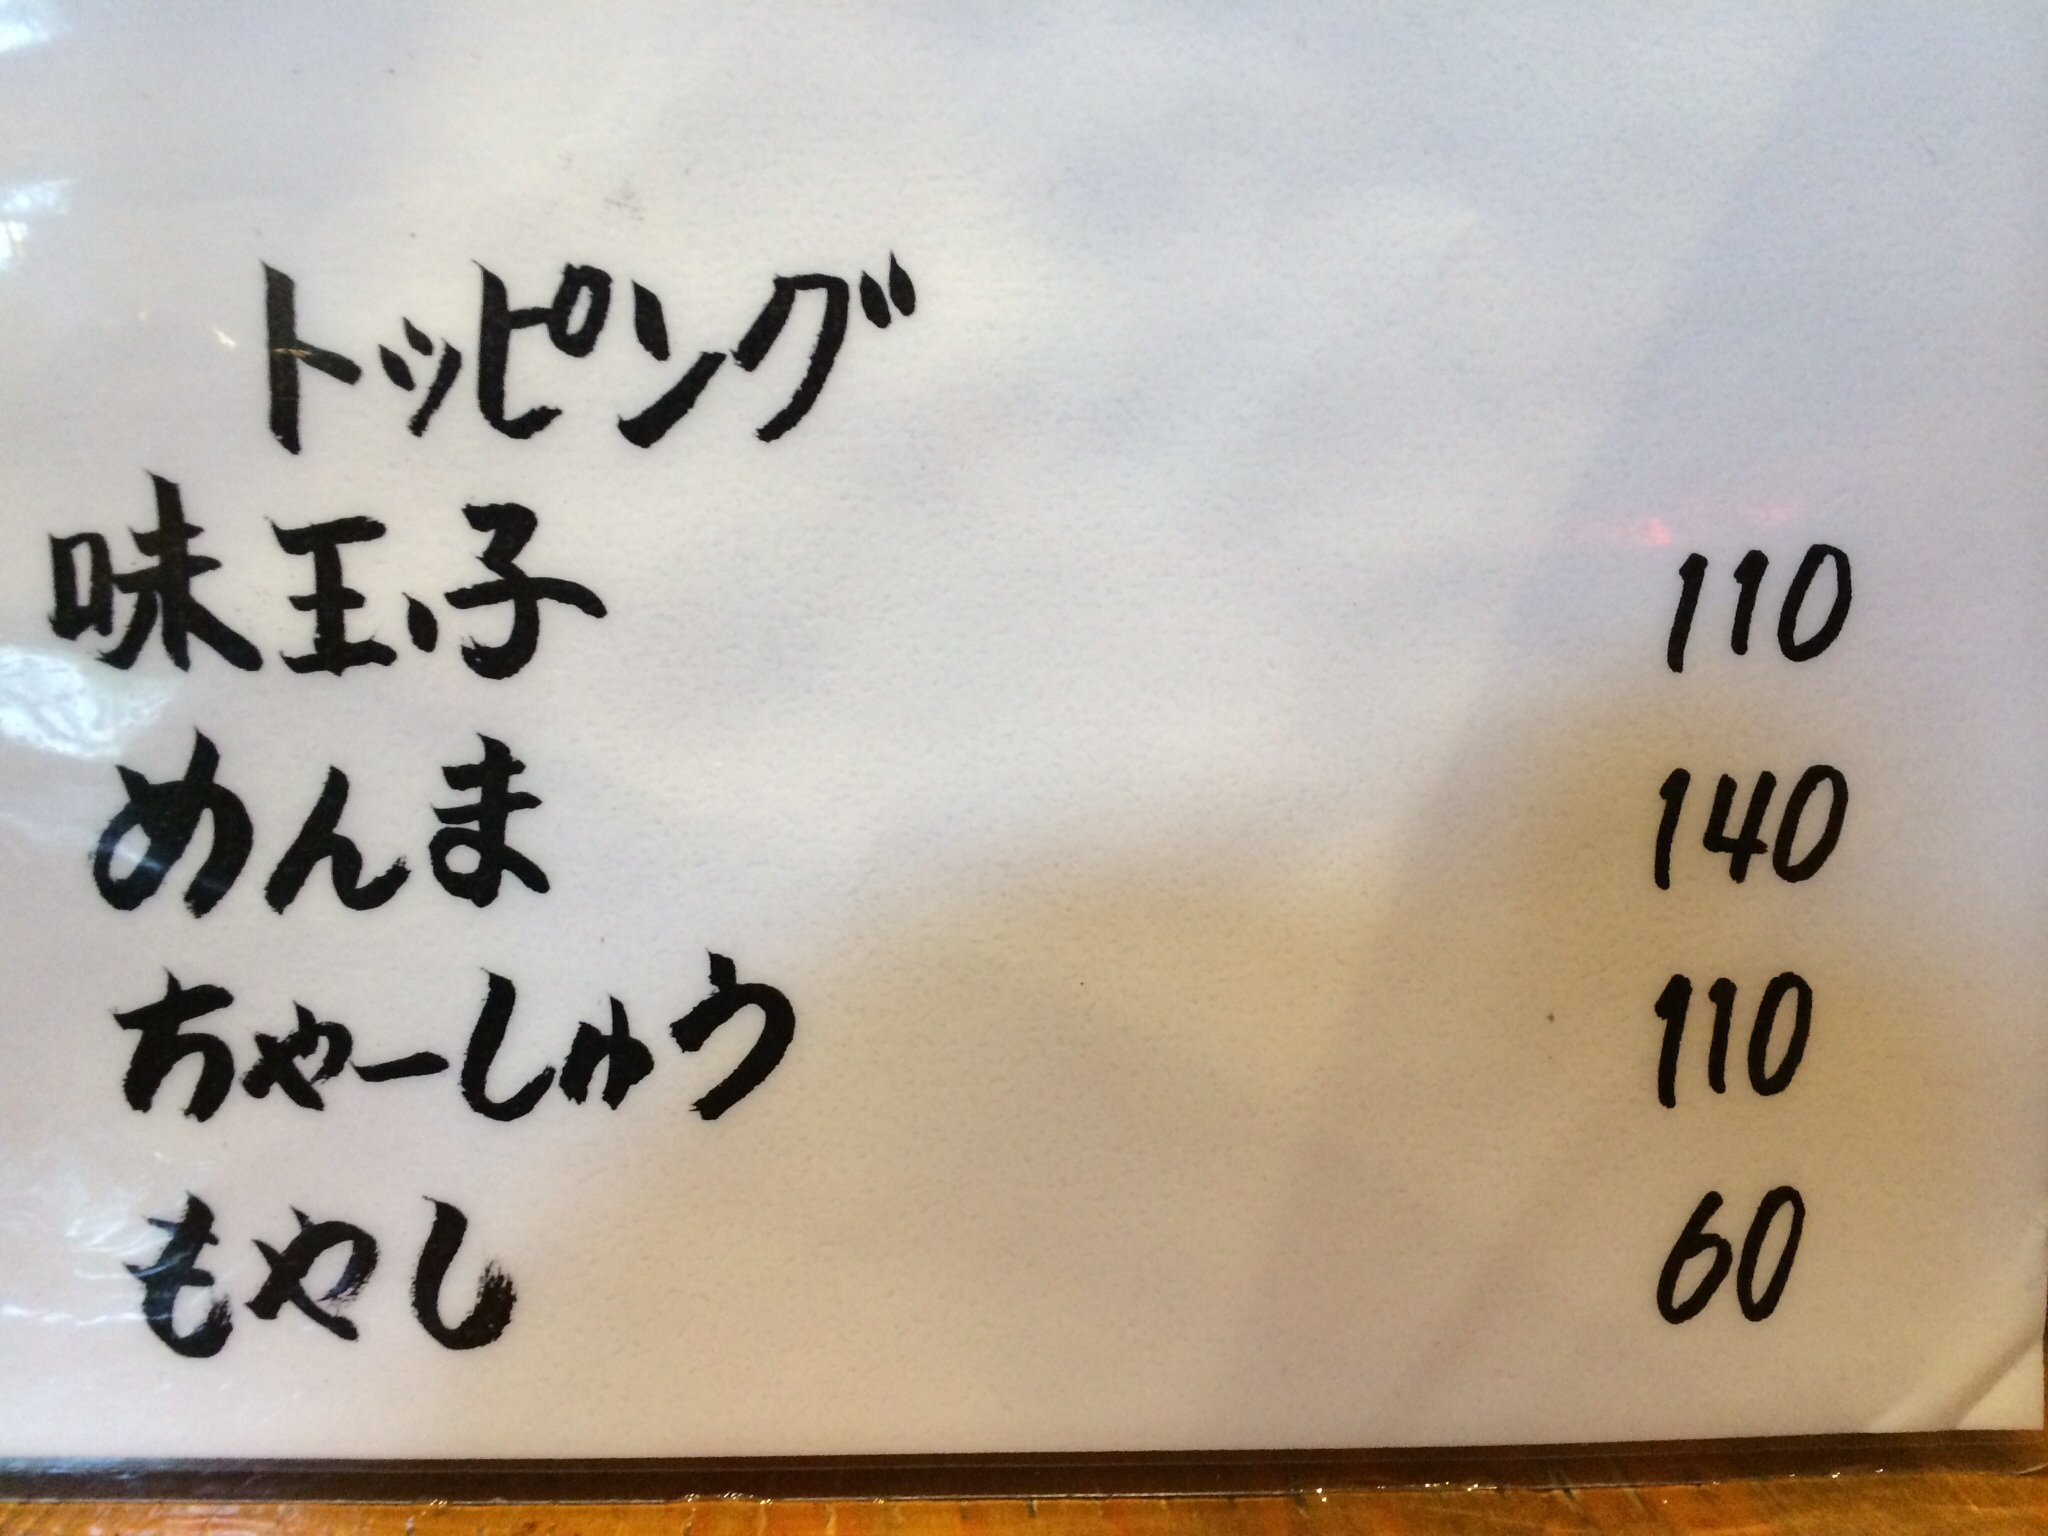 トッピング
味玉子 110
めんま 140
ちゃーしゅう 110
もやし 60